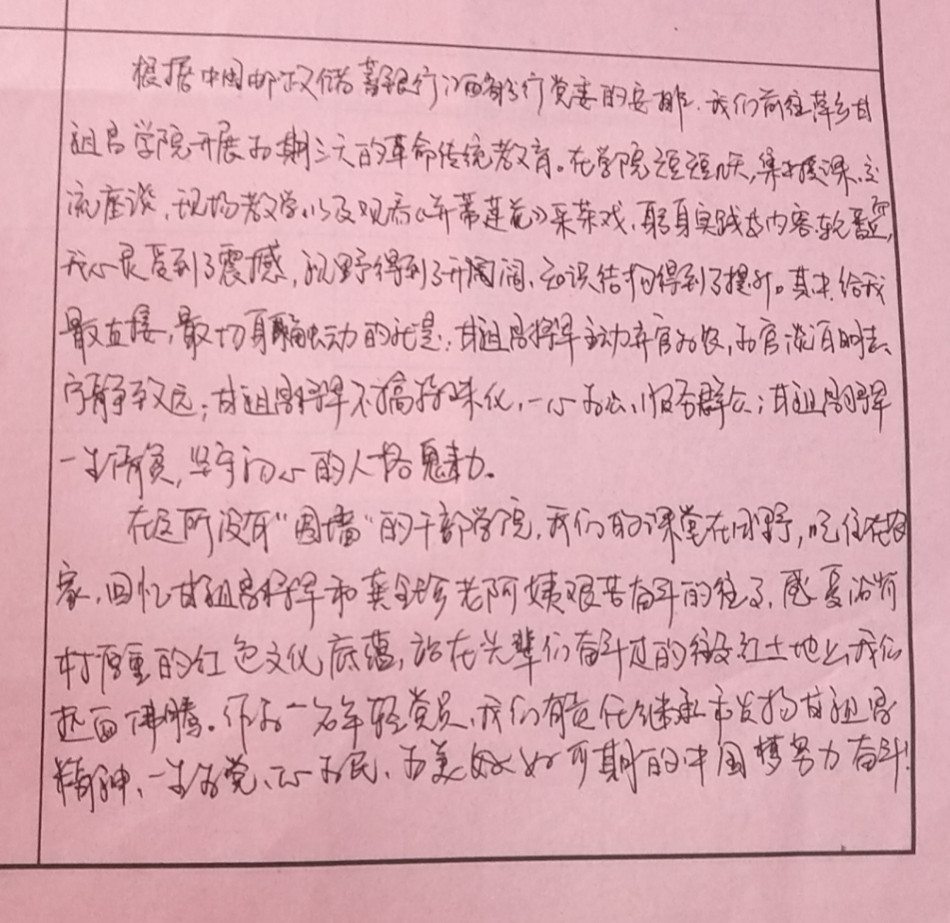 根据中国邮政储蓄银行江西省分行党委的安排,我们前往萍乡甘
祖昌学院开展为期三天的革命传统教育。在学院短短几天,集中授课、交
流座谈、现场教学以及观看《并蒂莲花》采茶戏、躬身实践等内容
我心灵受到了震撼,视野得到了开阔,知识结构得到了提升。其中给我
最直接,最切身触动的就是:甘祖昌将军主动弃官为农,为官淡泊明志、
宁静致远;甘祖昌将军不搞特殊化,一心为公,服务群众;甘祖昌将军
一生清贫,坚守初心的人格魅力。
在这所没有“围墙”的干部学院,我们的课堂在田野,吃住在农
家,回忆甘祖昌将军和龚全珍老阿姨艰苦奋斗的往事,感受沿背
村厚重的红色文化底蕴,站在先辈们奋斗过的红土地上,我们
热血沸腾。作为一名年轻党员,我们有责任继承和发扬甘祖昌
精神,一生为党、一心为民,为美好可期的中国梦努力奋斗!